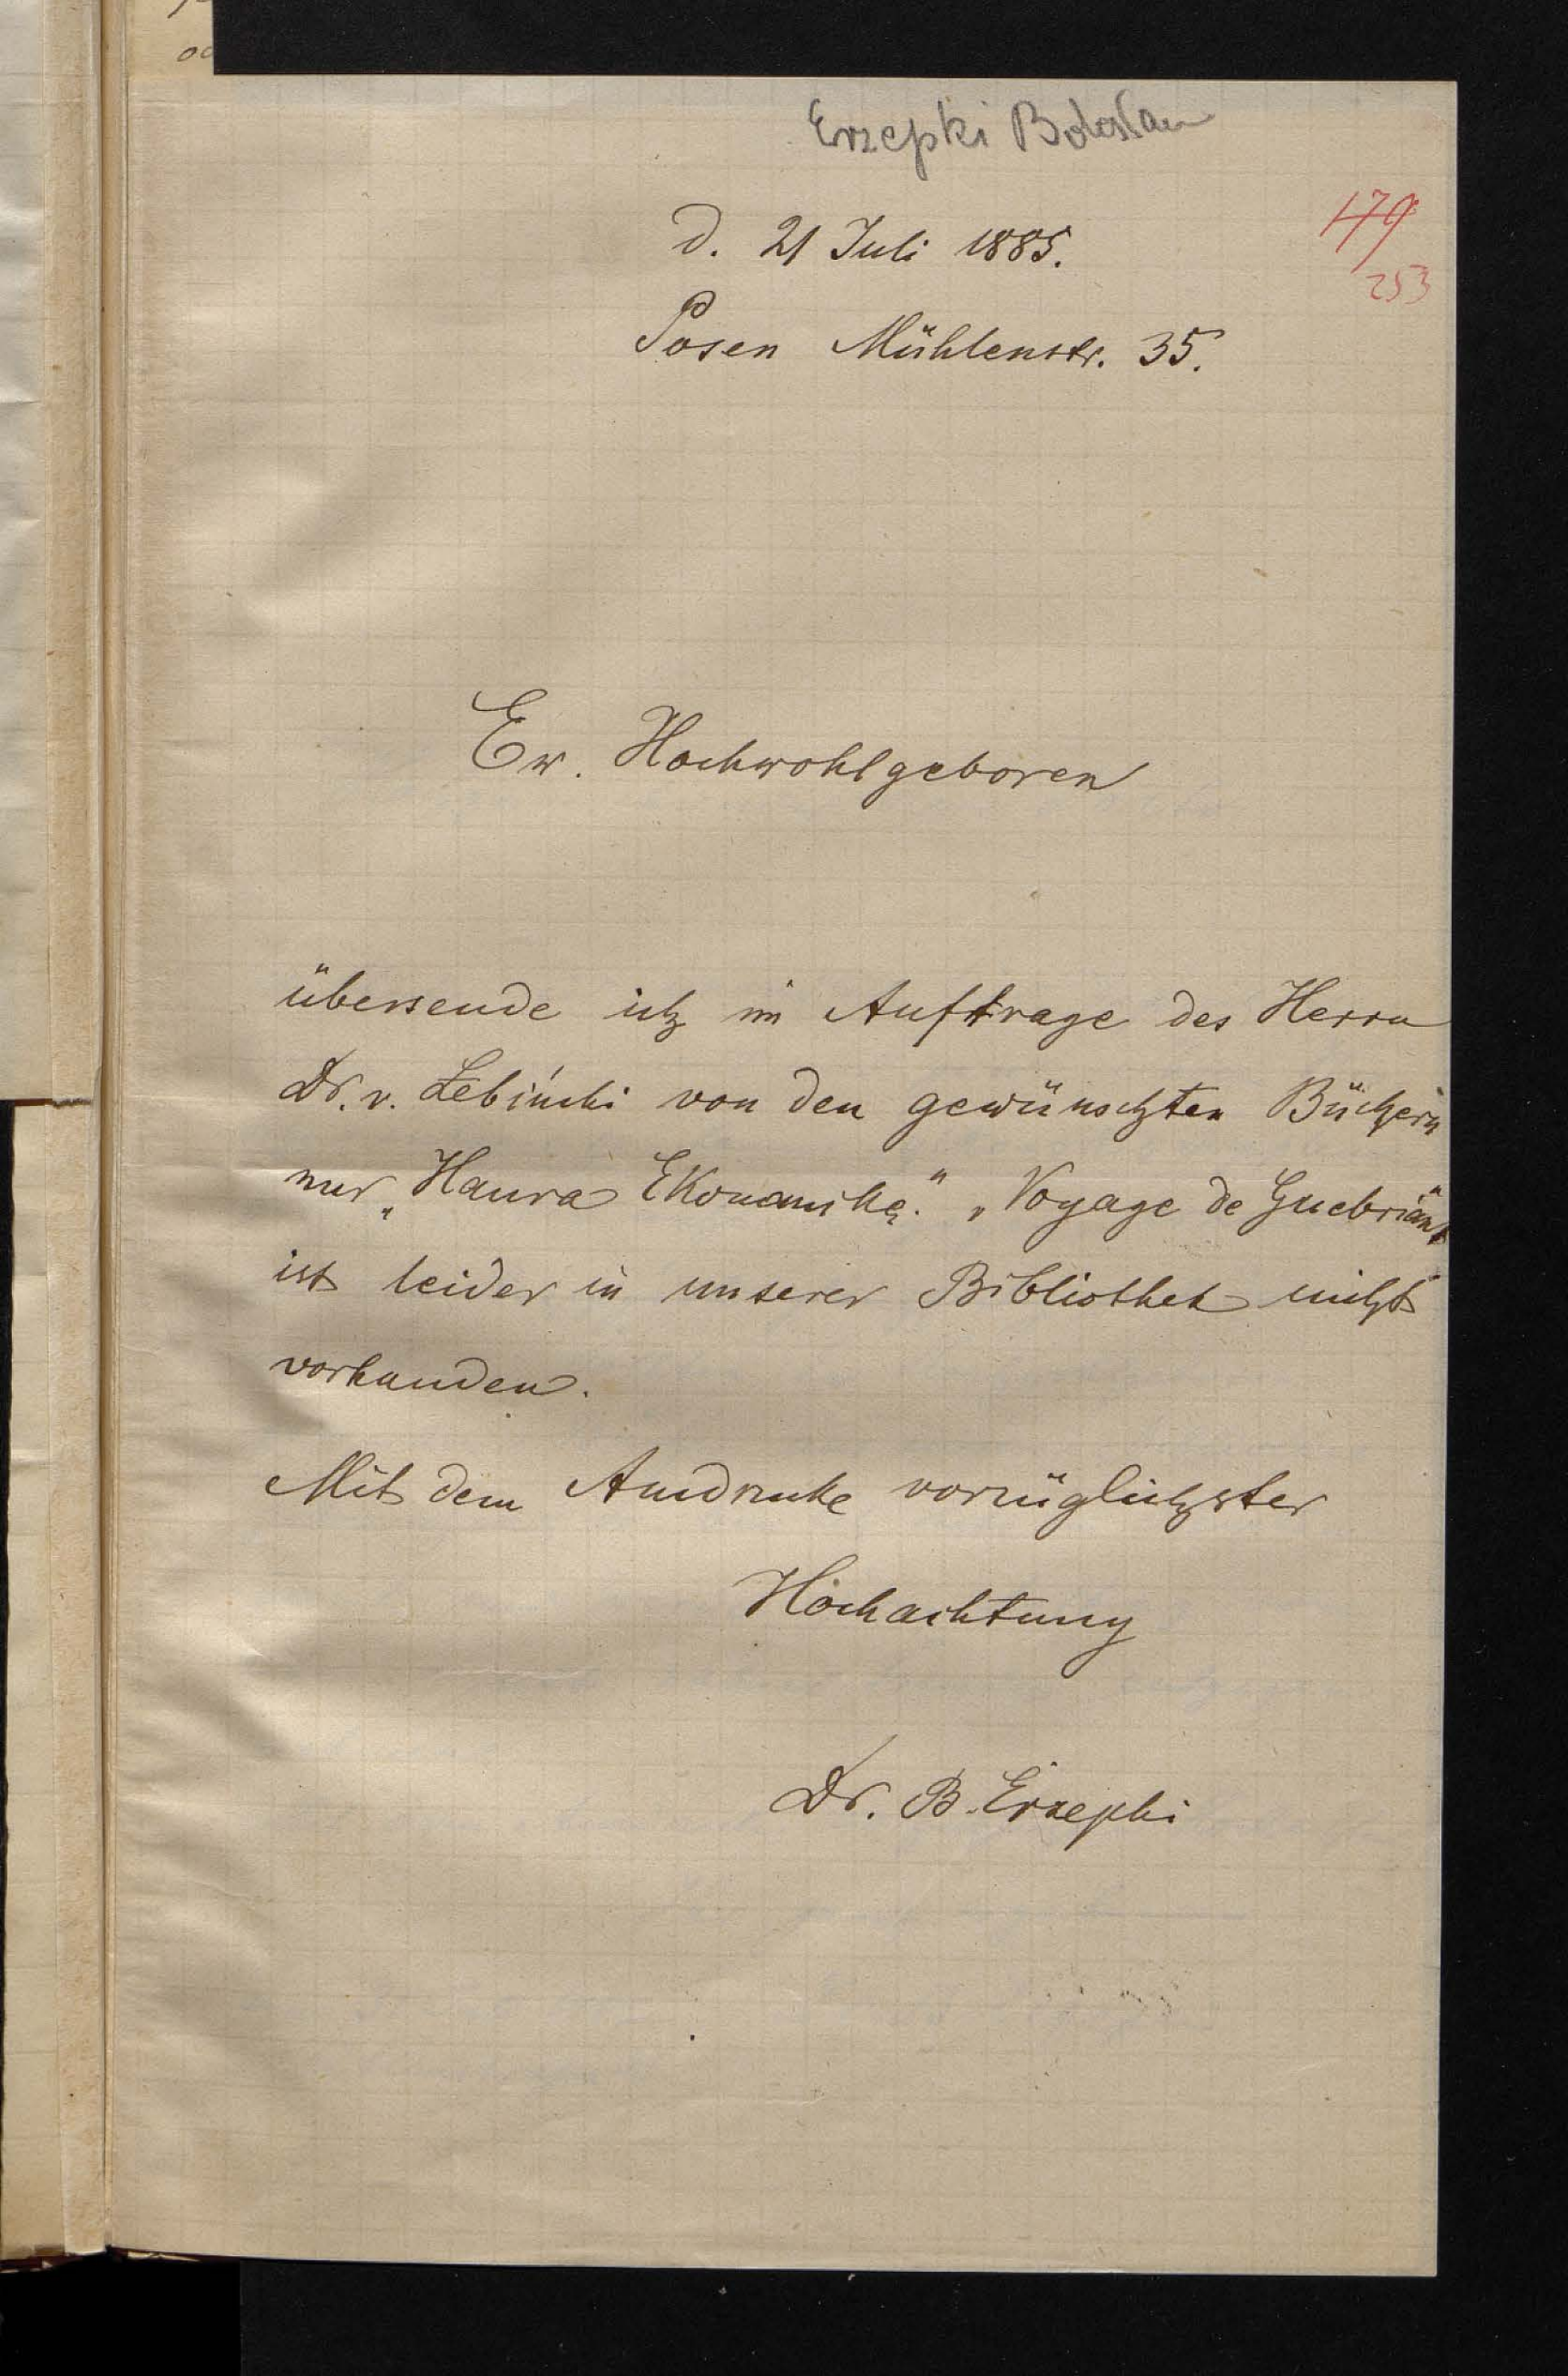 Erzepki Bolesław
179
253
d. 21 Juli 1885.
Posen Mühlenstr. 35.
Ew. Hochwohlgeboren
übersende ich im Auftrage des Herrn
Dr. v. Łebiński von den gewünschten Büchern
nur „Haura Ekonomikę.“ „Voyage de Guebriant“
ist leider in unserer Bibliothek nicht
vorhanden.
Mit dem Ausdrucke vorzüglichster
Hochachtung
Dr. B. Erzepki